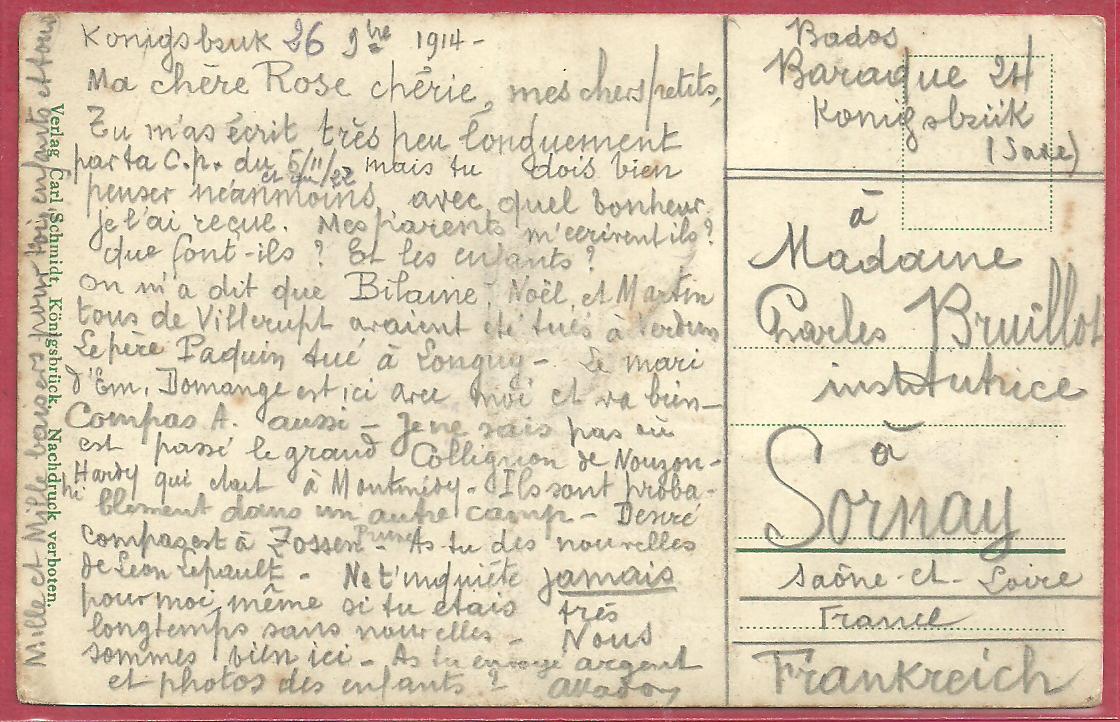 Konigsbruk 26 9bre 1914 -
Ma chère Rose chérie, mes chers petits,
Tu m'as écrit très peu longuement
par ta C.p. du 5/11/22 mais tu dois bien
penser néanmoins avec quel bonheur
je l'ai reçue. Mes parents m'écrivent ils?
que font-ils? Et les enfants?
On m'a dit que Bilaine, Noël, et Martin
tous de Villerupt avaient été tués à Verdun
Le père Paquin tué à Longuy - Le mari
d'Em. Domange est ici avec moi et va bien -
Compas A. aussi - Je ne sais pas où
est passé le grand Collignon de Nouzon -
ni Hardy qui était à Montmédy - Ils sont proba-
blement dans un autre camp - Désiré
Compas est à Zossen Prusse - As tu des nouvelles
de Léon Lepault - Ne t'inquiète jamais
pour moi même si tu étais très
longtemps sans nouvelles - Nous
sommes bien ici - As tu envoyé argent
et photos des enfants?
Mille et Mille baisers pour toi, enfants et tous
Verlag Carl Schmidt, Königsbrück. Nachdruck verboten.
Bados
Baraque 24
Konigsbrük
(Saxe)
à
Madame
Charles Bruillot
institutrice
à
Sornay
Saône-et-Loire
France
Frankreich